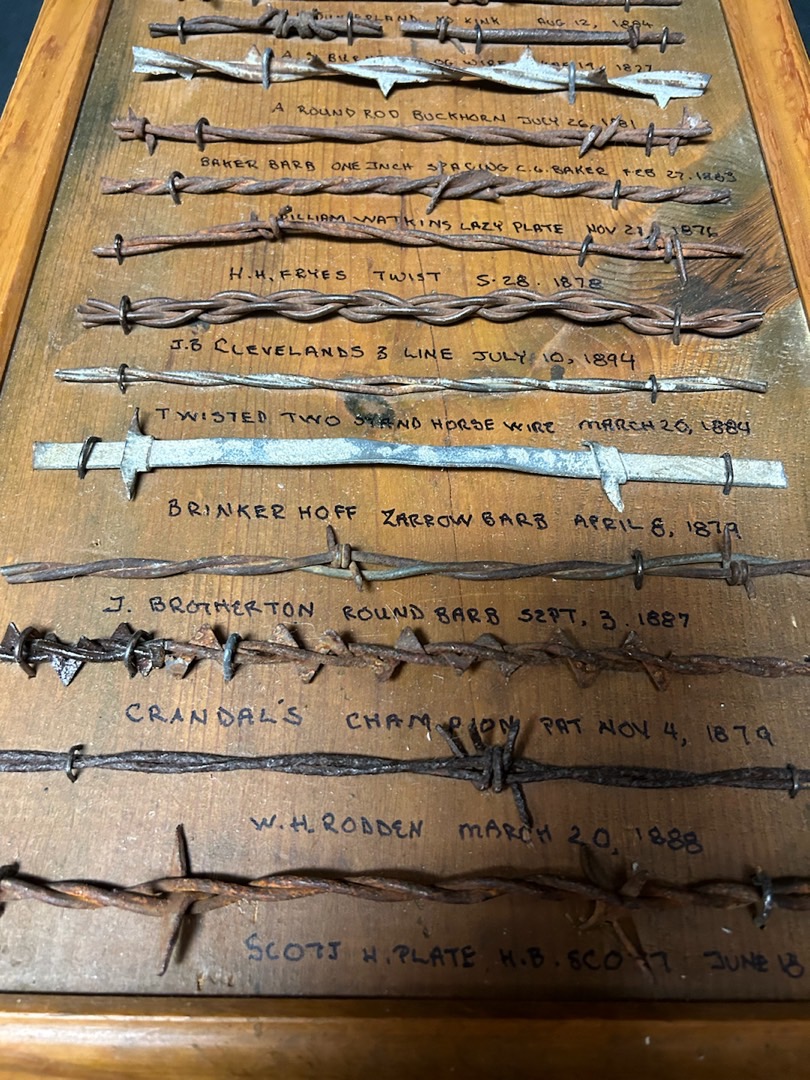 KINK AUG 12, 1884
WIRE
A ROUND ROD BUCKHORN JULY 26, 1881
BAKER BARB ONE INCH SPACING C.G. BAKER FEB 27. 1883
WILLIAM WATKINS LAZY PLATE NOV 1876
H.H. FRYES TWIST 5.28.1878
J.B CLEVELANDS 3 LINE JULY 10, 1894
TWISTED TWO STAND HORSE WIRE MARCH 20, 1884
BRINKER HOFF ZARROW BARB APRIL 8, 1879
J. BROTHERTON ROUND BARB SEPT, 3. 1887
CRANDAL'S CHAMPION PAT NOV 4, 1879
W.H. RODDEN MARCH 20, 1888
SCOTT H. PLATE H.B. SCOTT JUNE 18